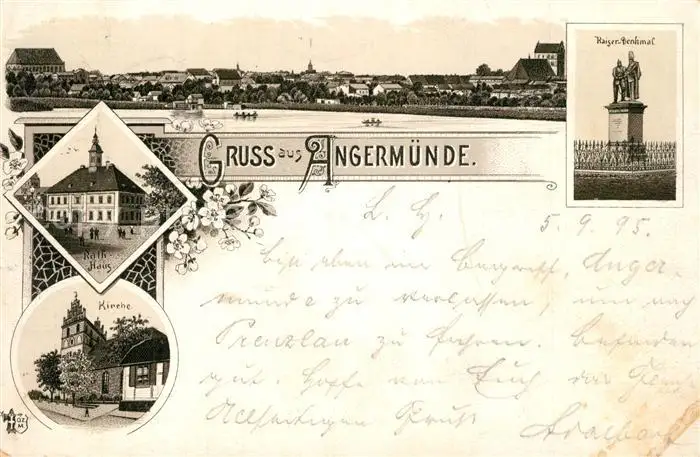 Kaiser-Denkmal
GRUSS aus ANGERMÜNDE.
Rath-
Haus
Kirche
L. H. 5. 9. 95.
Bin eben im Begriff, Anger-
münde zu verlassen, um nach
Prenzlau zu fahren. Befinden
gut. Hoffe von Euch das
Allseitigen Gruß
Adalbert